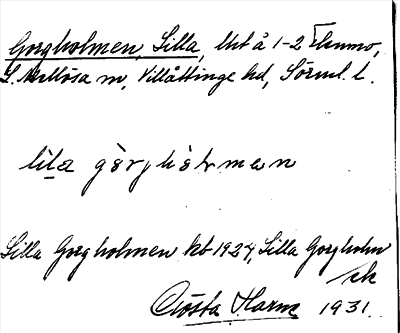 Gorgholmen, Lilla, lht å 1-2 Flenmo,
L. Mellösa sn, Villåttinge hd, Södml. l.
lila görjhòlmen
Lilla Gorgholmen kb 1927, Lilla Gorgholm
ek
Gösta Harm 1931.